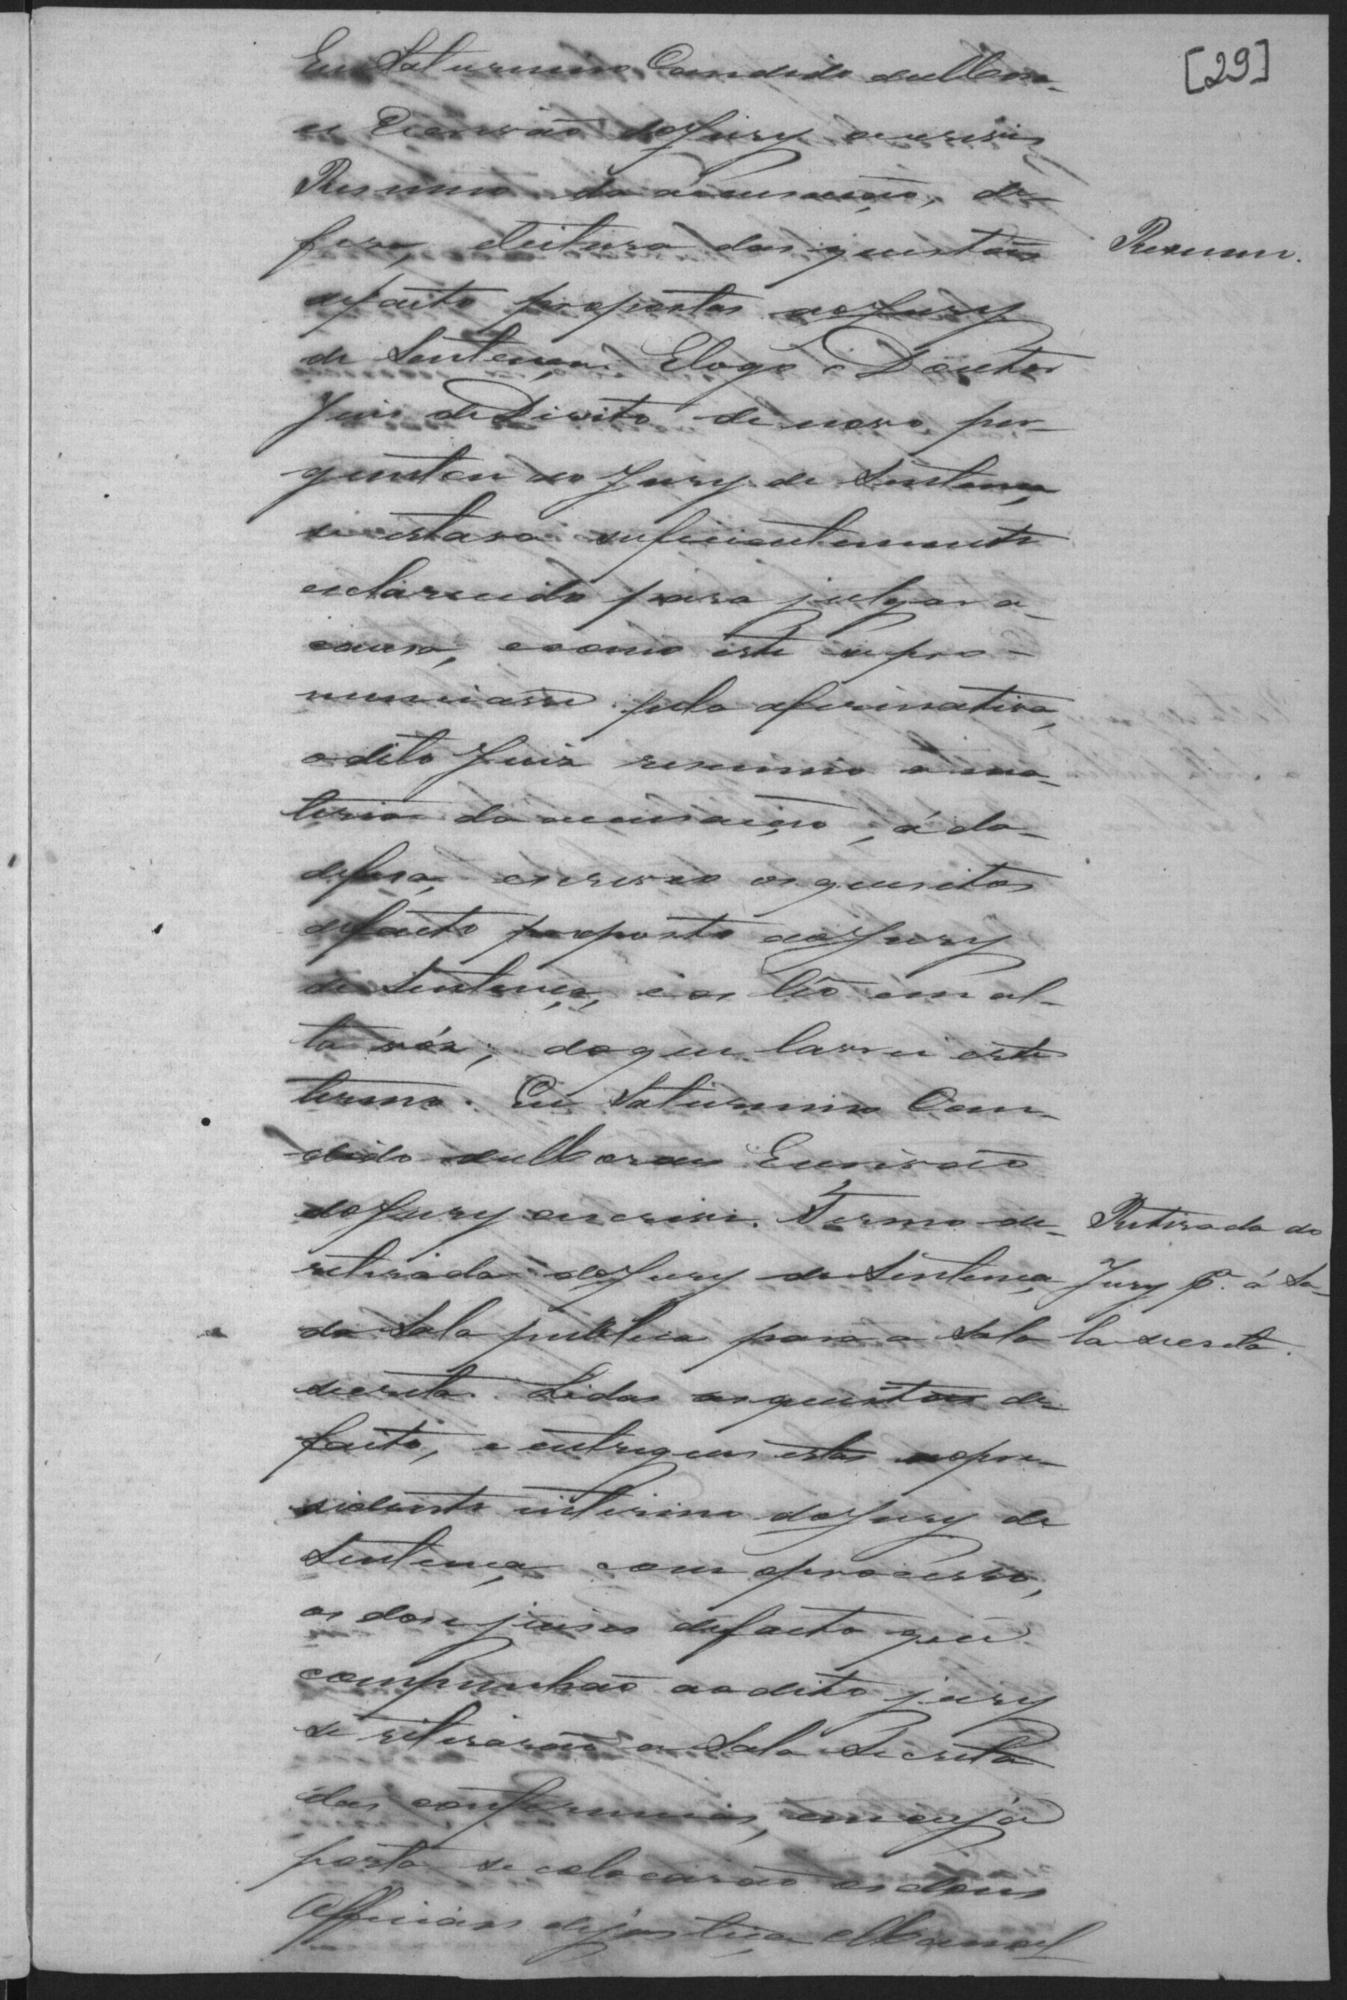 [29]
Eu Saturnino Candido de Mora-
es Escrivão do Jury escrevi
Resumo da accusação, de-
feza, e leitura das questões
de facto propostas ao Jury
de Sentença. E logo o Doutor
Juis de Direito de novo per-
guntou ao Jury de Sentença
si estava suficientemente
esclarecido para julgar a
causa, e como este se pro-
nunciasse pela afirmativa,
o dito Juiz resumio a ma-
teria da accusação, á da
defesa, escreveo os quesitos
de facto proposto ao Jury
de Sentença, e os léo em al-
ta vóz; do que lavrei este
termo. Eu Saturnino Can-
dido de Moraes Escrivão
do Jury escrevi. Termo de
retirada do Jury de Sentença
da Sala publica para a Sala
secreta. Lidas as questoes de
facto, e entregues estas ao pre-
sidente interino do Jury de
Sentença com o processo,
os dose juises de facto que
compunhão ao dito jury
se retirarão a Sala Secreta
das conferencias, em cuja
porta se colocarão os dous
Officiaes de justiça Manoel
Resumo.
Retirada do
Jury pª. á Sa-
la secreta.